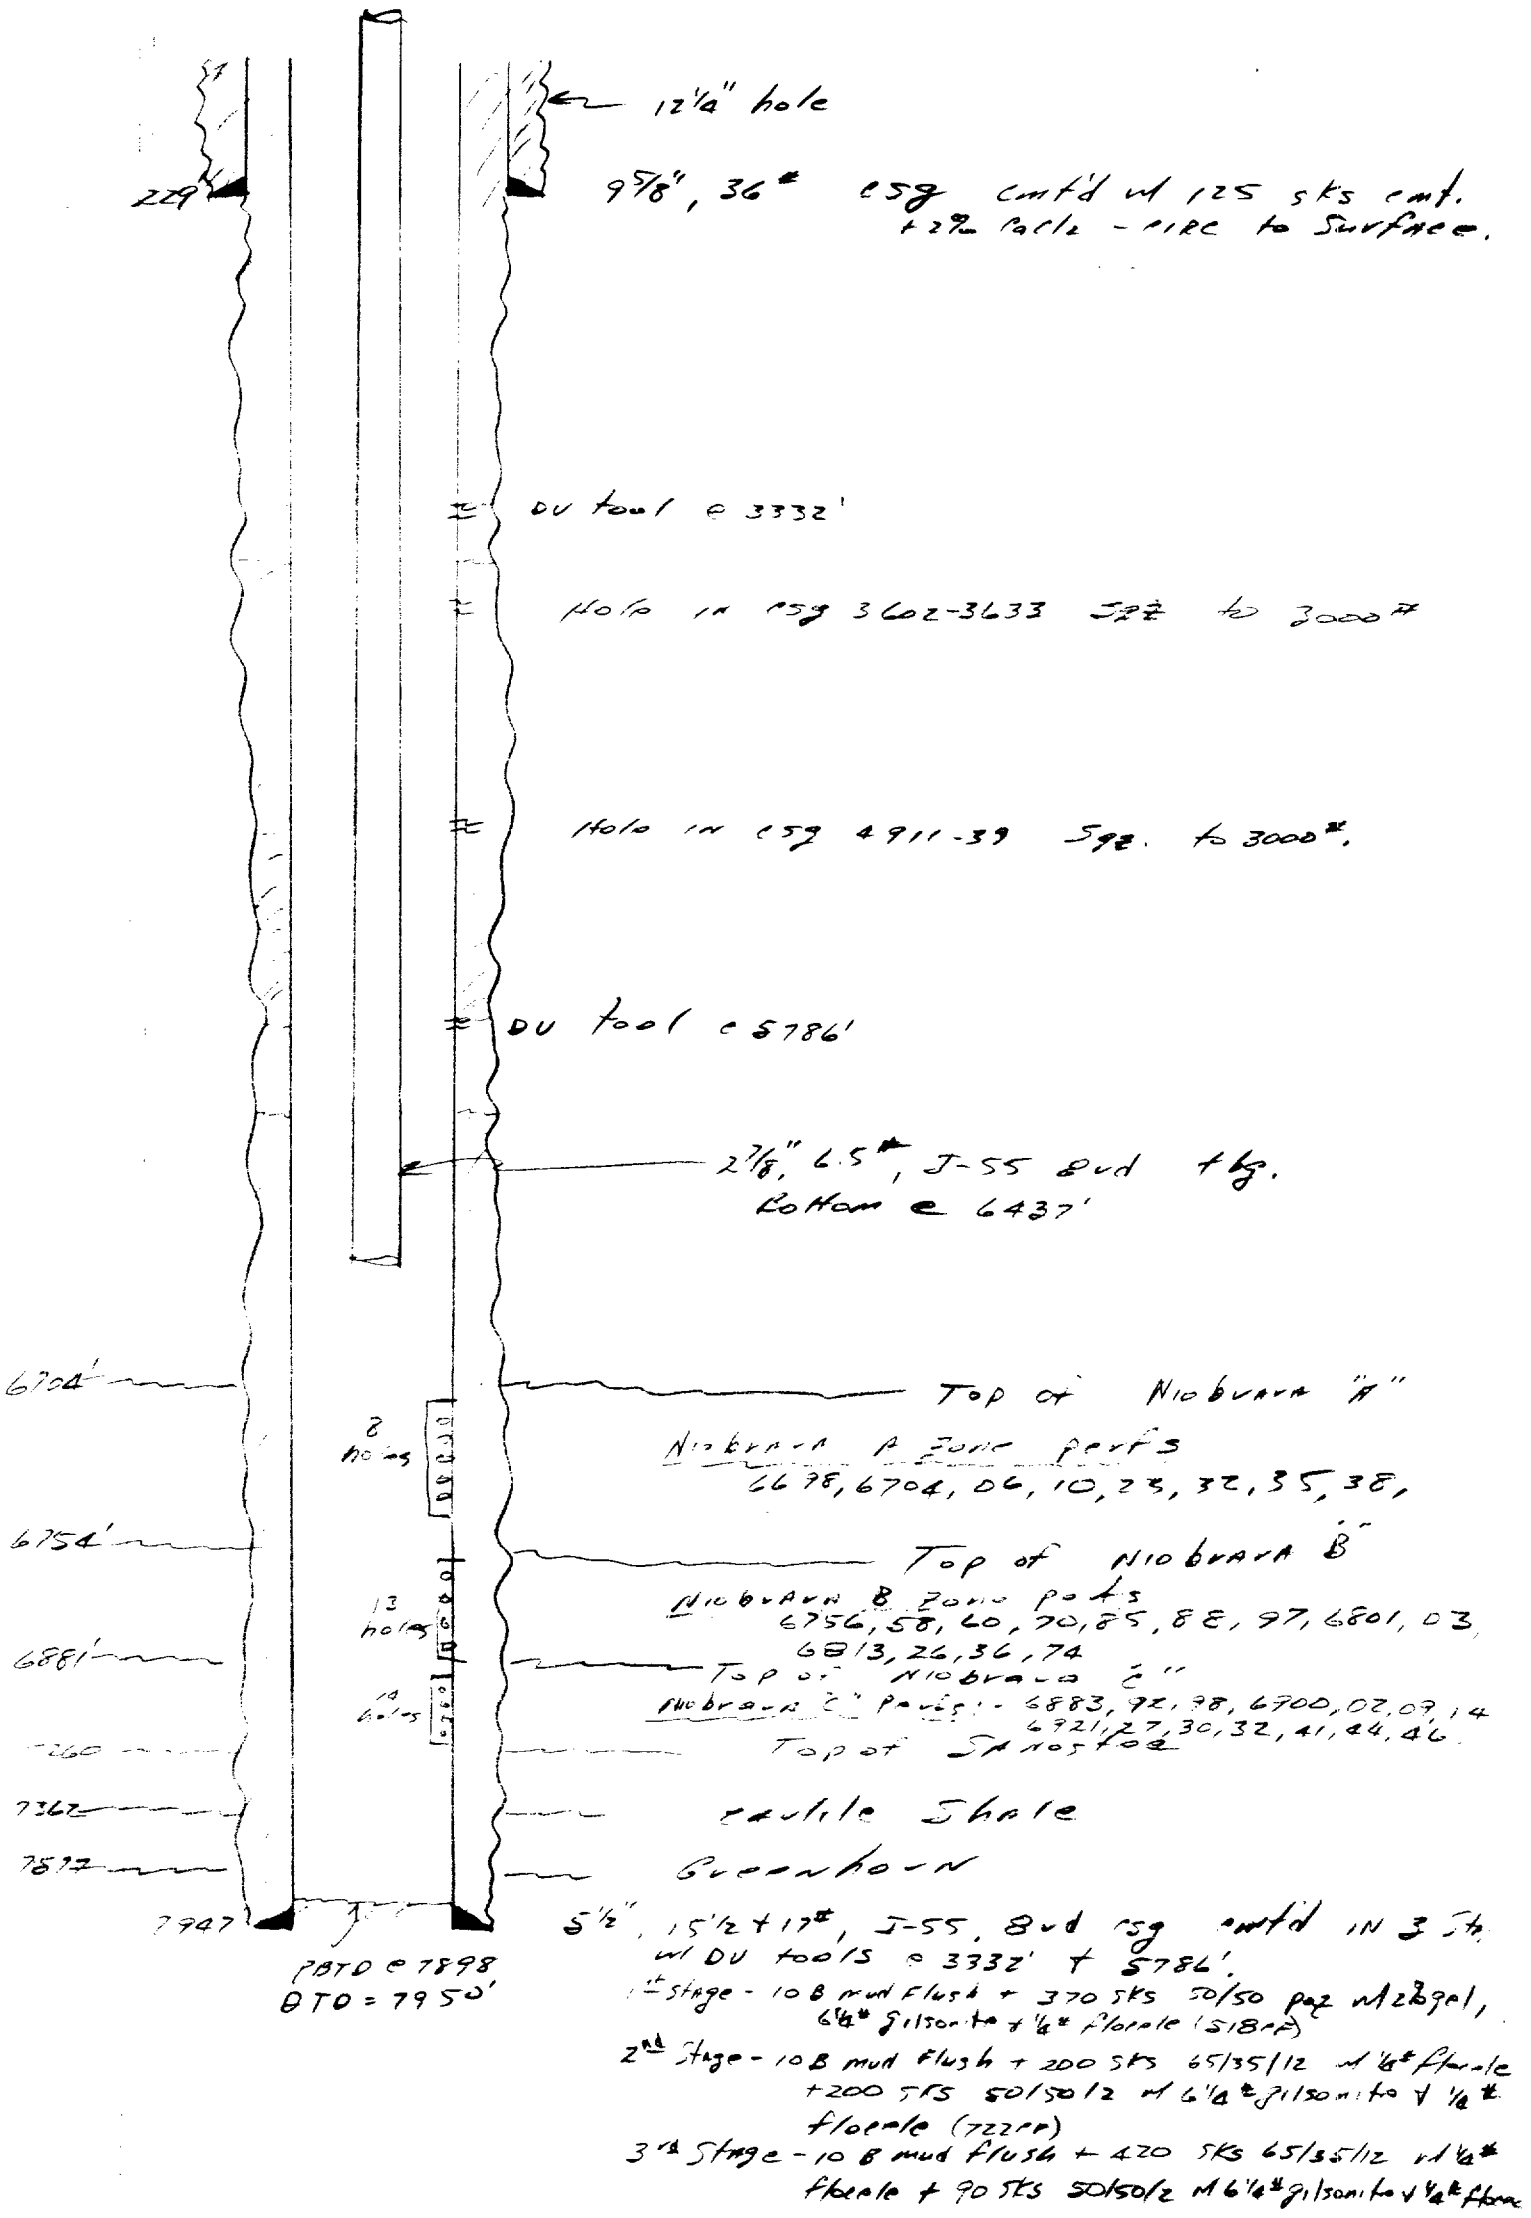 12 1/4" hole
229'
9 5/8", 36# csg cmt'd w/ 125 sks cmt.
+2% CaCl2 - circ to surface.
DV tool @ 3332'
Hole in csg 3602-3633 sqz to 3000#
Hole in csg 4911-39 sqz. to 3000#.
DV tool @ 5786'
2 7/8", 6.5#, J-55 8rd tbg.
Bottom @ 6437'
6704'
Top of Niobrara "A"
8
holes
Niobrara A Zone perfs
6698, 6704, 06, 10, 23, 32, 35, 38,
6754'
Top of Niobrara "B"
13
holes
Niobrara B Zone perfs
6756, 58, 60, 70, 85, 88, 97, 6801, 03,
6813, 26, 36, 74
6881'
Top of Niobrara "C"
14
holes
Niobrara "C" Perfs: - 6883, 92, 98, 6900, 02, 09, 14
6921, 27, 30, 32, 41, 44, 46
7260
Top of Sanostee
7362
Carlile Shale
Greenhorn
7947
5 1/2", 15 1/2 + 17#, J-55, 8rd csg cmt'd in 3 St.
w/ DV tools @ 3332' + 5786'.
PBTD @ 7898
OTD = 7950'
1st stage - 10 B mud flush + 370 sks 50/50 poz w/ 2% gel,
6 1/4# gilsonite + 1/4# flocele (518 cf)
2nd Stage - 10 B mud flush + 200 sks 65/35/12 w/ 1/4# flocele
+200 sks 50/50/2 w/ 6 1/4# gilsonite + 1/4#
flocele (722 cf)
3rd Stage - 10 B mud flush + 420 sks 65/35/12 w/ 1/4#
flocele + 90 sks 50/50/2 w/ 6 1/4# gilsonite + 1/4#